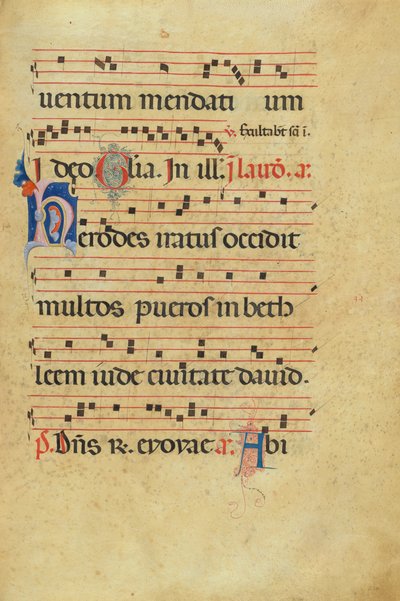 uentum mendati um
℣. Exultabt sci i.
I deo Glia. In ill. I laud. a.
Herodes iratus occidit
multos pueros in beth
leem iude ciuitate dauid.
p. Dns R. evovae a. Abi